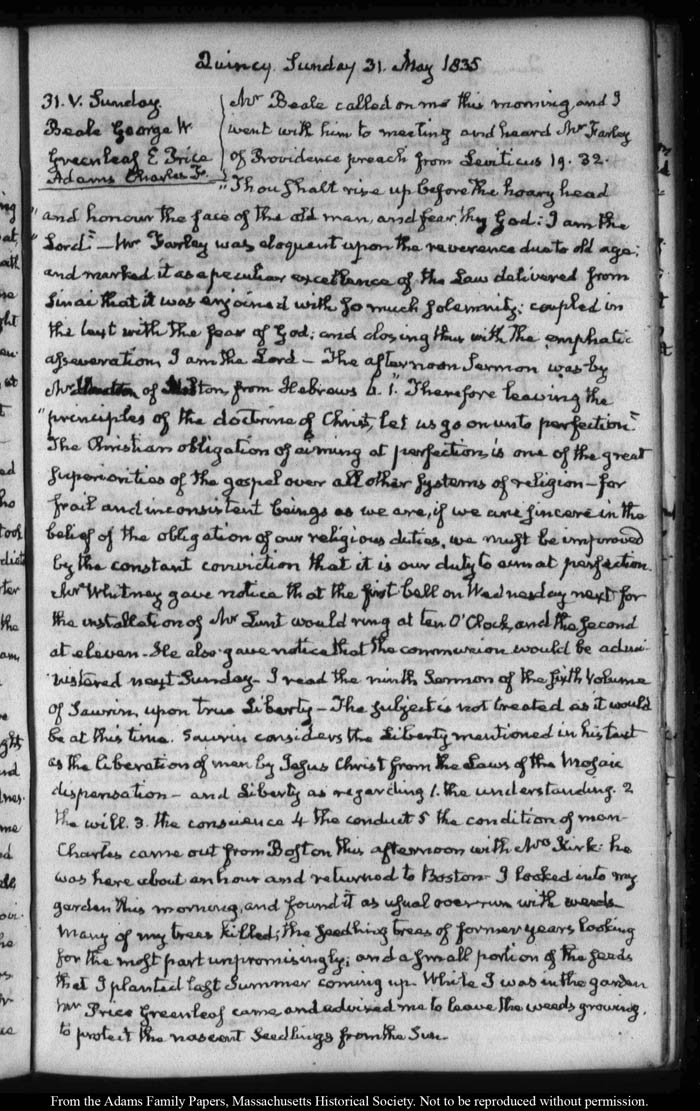 Quincy, Sunday 31. May 1835
31. V. Sunday.
Beale George W
Greenleaf E Price
Adams Charles F.
Mr Beale called on me this morning, and I
went with him to meeting and heard Mr Farley
of Providence preach from Leviticus 19. 32.
"Thou shalt rise up before the hoary head
"and honour the face of the old man, and fear thy God: I am the
"Lord." — Mr Farley was eloquent upon the reverence due to old age;
and marked it as a peculiar excellence of the Law delivered from
Sinai that it was enjoined with so much solemnity; coupled in
the text with the fear of God; and closing thus with the emphatic
asseveration, I am the Lord — The afternoon Sermon was by
Mr of from Hebrews 6. 1. "Therefore leaving the
"principles of the doctrine of Christ, let us go on unto perfection"
The Christian obligation of aiming at perfection, is one of the great
superiorities of the gospel over all other systems of religion — for
frail and inconsistent beings as we are, if we are sincere in the
belief of the obligation of our religious duties, we must be improved
by the constant conviction that it is our duty to aim at perfection.
Mr Whitney gave notice that the first bell on Wednesday next for
the installation of Mr Lunt would ring at ten O'Clock, and the second
at eleven. He also gave notice that the communion would be admi-
nistered next Sunday — I read the ninth Sermon of the sixth Volume
of Saurin, upon true Liberty — The subject is not treated as it would
be at this time. Saurin considers the Liberty mentioned in his text
as the liberation of man by Jesus Christ from the Laws of the Mosaic
dispensation — and Liberty as regarding 1. the understanding. 2
the will. 3. the conscience 4 the conduct 5 the condition of man —
Charles came out from Boston this afternoon with Mrs Kirk: he
was here about an hour and returned to Boston — I looked into my
garden this morning, and found it as usual overrun with weeds
Many of my trees killed; the seedling trees of former years looking
for the most part unpromisingly; and a small portion of the seeds
that I planted last Summer coming up. While I was in the garden
Mr Price Greenleaf came and advised me to leave the weeds growing,
to protect the nascent seedlings from the Sun.
From the Adams Family Papers, Massachusetts Historical Society. Not to be reproduced without permission.